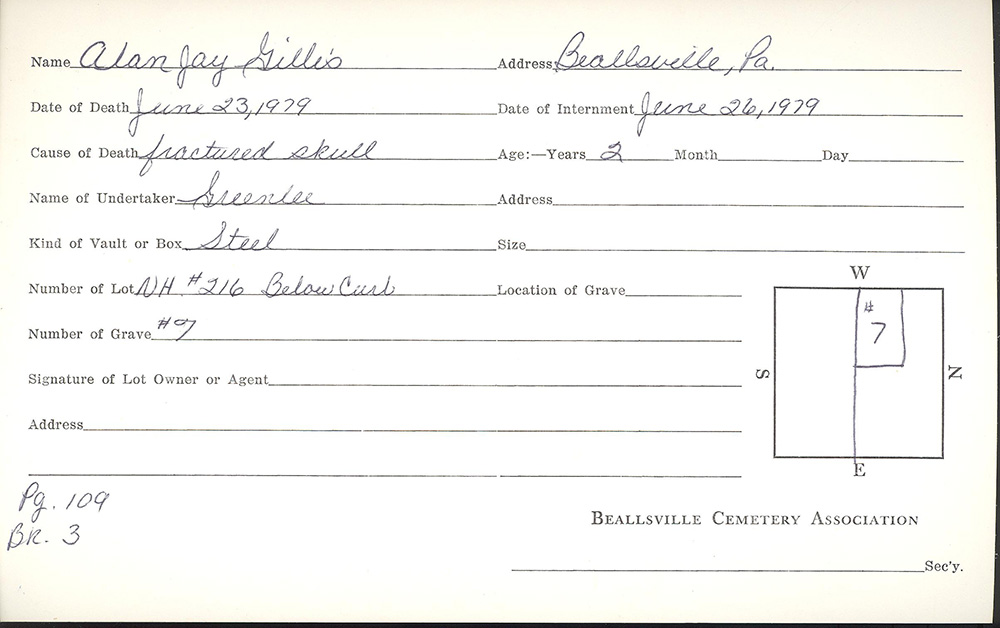 Name Alan Jay Gillis Address Beallsville, Pa.
Date of Death June 23, 1979 Date of Internment June 26, 1979
Cause of Death fractured skull Age:—Years 2 Month Day
Name of Undertaker Greenlee Address
Kind of Vault or Box Steel Size
Number of Lot NH. #216 Below Curb Location of Grave
W
Number of Grave #7
# 7
S
N
Signature of Lot Owner or Agent
Address
E
Pg. 109
Bk. 3
BEALLSVILLE CEMETERY ASSOCIATION
Sec'y.